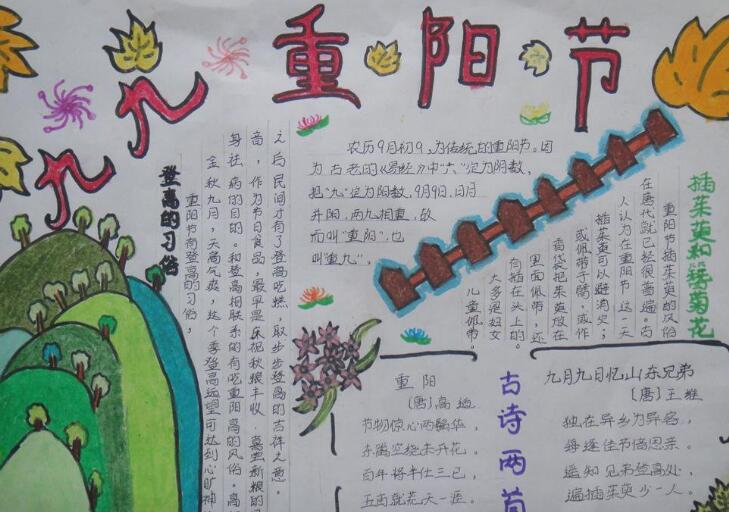 九九重阳节
登高的习俗
重阳节有登高的习俗，
金秋九月，天高气爽，这个季登高远望可达到心旷神
身祛病的目的。和登高相联系的有吃重阳高的风俗。高
音，作为节日食品，最早是庆祝秋粮丰收、喜尝新粮的
之后民间才有了登高吃糕，取步步登高的吉祥之意。
农历9月初9，为传统的重阳节。因
为古老的《易经》中“六”定为阴数，
把“九”定为阳数，9月9日，日月
并阳，两九相重，故
而叫“重阳”，也
叫“重九”。
插茱萸和簪菊花
重阳节插茱萸的汉俗
在唐代就已经很普遍。古
人认为在重阳节这一天
插茱萸可以避消灾；
或佩带于臂，或作
香袋把茱萸放在
里面佩带，还
有插在头上的。
大多是妇女
儿童佩带。
古诗两首
重阳
(唐)高
节物惊心两鬓华，
东篱空绕未开花。
百年将半仕三已，
五亩就荒天一涯。
九月九日忆山东兄弟
(唐)王维
独在异乡为异客，
每逢佳节倍思亲。
遥知兄弟登高处，
遍插茱萸少一人。